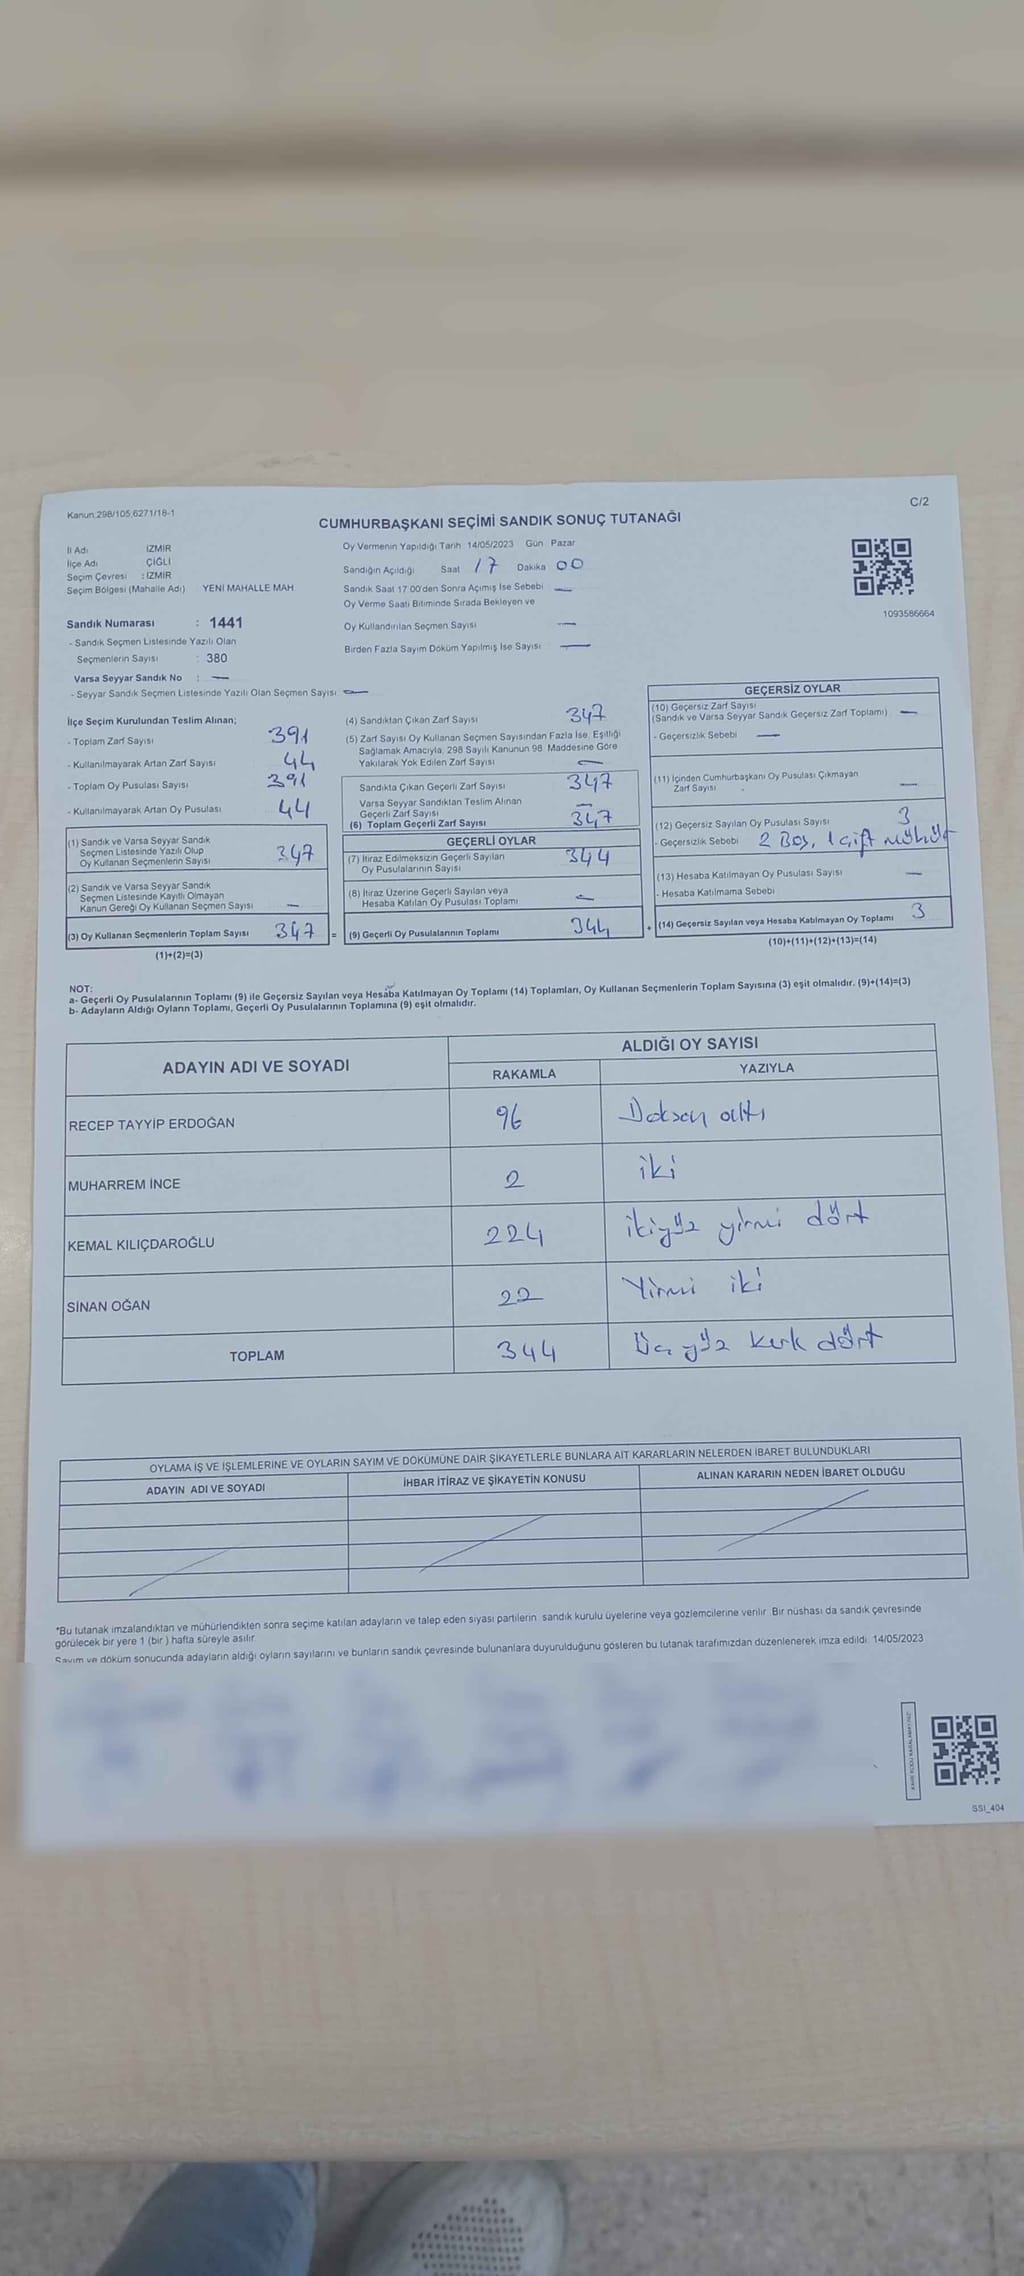 Kanun:298/105,6271/18-1
C/2
CUMHURBAŞKANI SEÇİMİ SANDIK SONUÇ TUTANAĞI
İl Adı İZMİR
İlçe Adı ÇİĞLİ
Seçim Çevresi : İZMİR
Seçim Bölgesi (Mahalle Adı) YENİ MAHALLE MAH.
Oy Vermenin Yapıldığı Tarih 14/05/2023 Gün Pazar
Sandığın Açıldığı Saat 17 Dakika 00
Sandık Saat 17:00'den Sonra Açımış İse Sebebi —
Oy Verme Saati Bitiminde Sırada Bekleyen ve
Oy Kullandırılan Seçmen Sayısı —
Birden Fazla Sayım Döküm Yapılmış İse Sayısı —
1093586664
Sandık Numarası : 1441
- Sandık Seçmen Listesinde Yazılı Olan
Seçmenlerin Sayısı : 380
Varsa Seyyar Sandık No : —
- Seyyar Sandık Seçmen Listesinde Yazılı Olan Seçmen Sayısı —
İlçe Seçim Kurulundan Teslim Alınan;
- Toplam Zarf Sayısı 391
- Kullanılmayarak Artan Zarf Sayısı 44
- Toplam Oy Pusulası Sayısı 391
- Kullanılmayarak Artan Oy Pusulası 44
(1) Sandık ve Varsa Seyyar Sandık
Seçmen Listesinde Yazılı Olup
Oy Kullanan Seçmenlerin Sayısı 347
(2) Sandık ve Varsa Seyyar Sandık
Seçmen Listesinde Kayıtlı Olmayan
Kanun Gereği Oy Kullanan Seçmen Sayısı —
(3) Oy Kullanan Seçmenlerin Toplam Sayısı 347
(1)+(2)=(3)
(4) Sandıktan Çıkan Zarf Sayısı 347
(5) Zarf Sayısı Oy Kullanan Seçmen Sayısından Fazla İse, Eşitliği
Sağlamak Amacıyla, 298 Sayılı Kanunun 98. Maddesine Göre
Yakılarak Yok Edilen Zarf Sayısı —
Sandıkta Çıkan Geçerli Zarf Sayısı 347
Varsa Seyyar Sandıktan Teslim Alınan
Geçerli Zarf Sayısı —
(6) Toplam Geçerli Zarf Sayısı 347
GEÇERLİ OYLAR
(7) İtiraz Edilmeksizin Geçerli Sayılan
Oy Pusulalarının Sayısı 344
(8) İtiraz Üzerine Geçerli Sayılan veya
Hesaba Katılan Oy Pusulası Toplamı —
= (9) Geçerli Oy Pusulalarının Toplamı 344
GEÇERSİZ OYLAR
(10) Geçersiz Zarf Sayısı
(Sandık ve Varsa Seyyar Sandık Geçersiz Zarf Toplamı) —
- Geçersizlik Sebebi —
(11) İçinden Cumhurbaşkanı Oy Pusulası Çıkmayan
Zarf Sayısı —
(12) Geçersiz Sayılan Oy Pusulası Sayısı 3
- Geçersizlik Sebebi 2 Boş, 1 çift mühür
(13) Hesaba Katılmayan Oy Pusulası Sayısı —
- Hesaba Katılmama Sebebi
+ (14) Geçersiz Sayılan veya Hesaba Katılmayan Oy Toplamı 3
(10)+(11)+(12)+(13)=(14)
NOT:
a- Geçerli Oy Pusulalarının Toplamı (9) ile Geçersiz Sayılan veya Hesaba Katılmayan Oy Toplamı (14) Toplamları, Oy Kullanan Seçmenlerin Toplam Sayısına (3) eşit olmalıdır. (9)+(14)=(3)
b- Adayların Aldığı Oyların Toplamı, Geçerli Oy Pusulalarının Toplamına (9) eşit olmalıdır.
ADAYIN ADI VE SOYADI ALDIĞI OY SAYISI
RAKAMLA YAZIYLA
RECEP TAYYİP ERDOĞAN 96 Doksan altı
MUHARREM İNCE 2 iki
KEMAL KILIÇDAROĞLU 224 ikiyüz yirmi dört
SİNAN OĞAN 22 Yirmi iki
TOPLAM 344 Üçyüz kırk dört
OYLAMA İŞ VE İŞLEMLERİNE VE OYLARIN SAYIM VE DÖKÜMÜNE DAİR ŞİKAYETLERLE BUNLARA AİT KARARLARIN NELERDEN İBARET BULUNDUKLARI
ADAYIN ADI VE SOYADI İHBAR İTİRAZ VE ŞİKAYETİN KONUSU ALINAN KARARIN NEDEN İBARET OLDUĞU
*Bu tutanak imzalandıktan ve mühürlendikten sonra seçime katılan adayların ve talep eden siyasi partilerin sandık kurulu üyelerine veya gözlemcilerine verilir. Bir nüshası da sandık çevresinde
görülecek bir yere 1 (bir) hafta süreyle asılır.
Sayım ve döküm sonucunda adayların aldığı oyların sayılarını ve bunların sandık çevresinde bulunanlara duyurulduğunu gösteren bu tutanak tarafımızdan düzenlenerek imza edildi. 14/05/2023
SSI_404